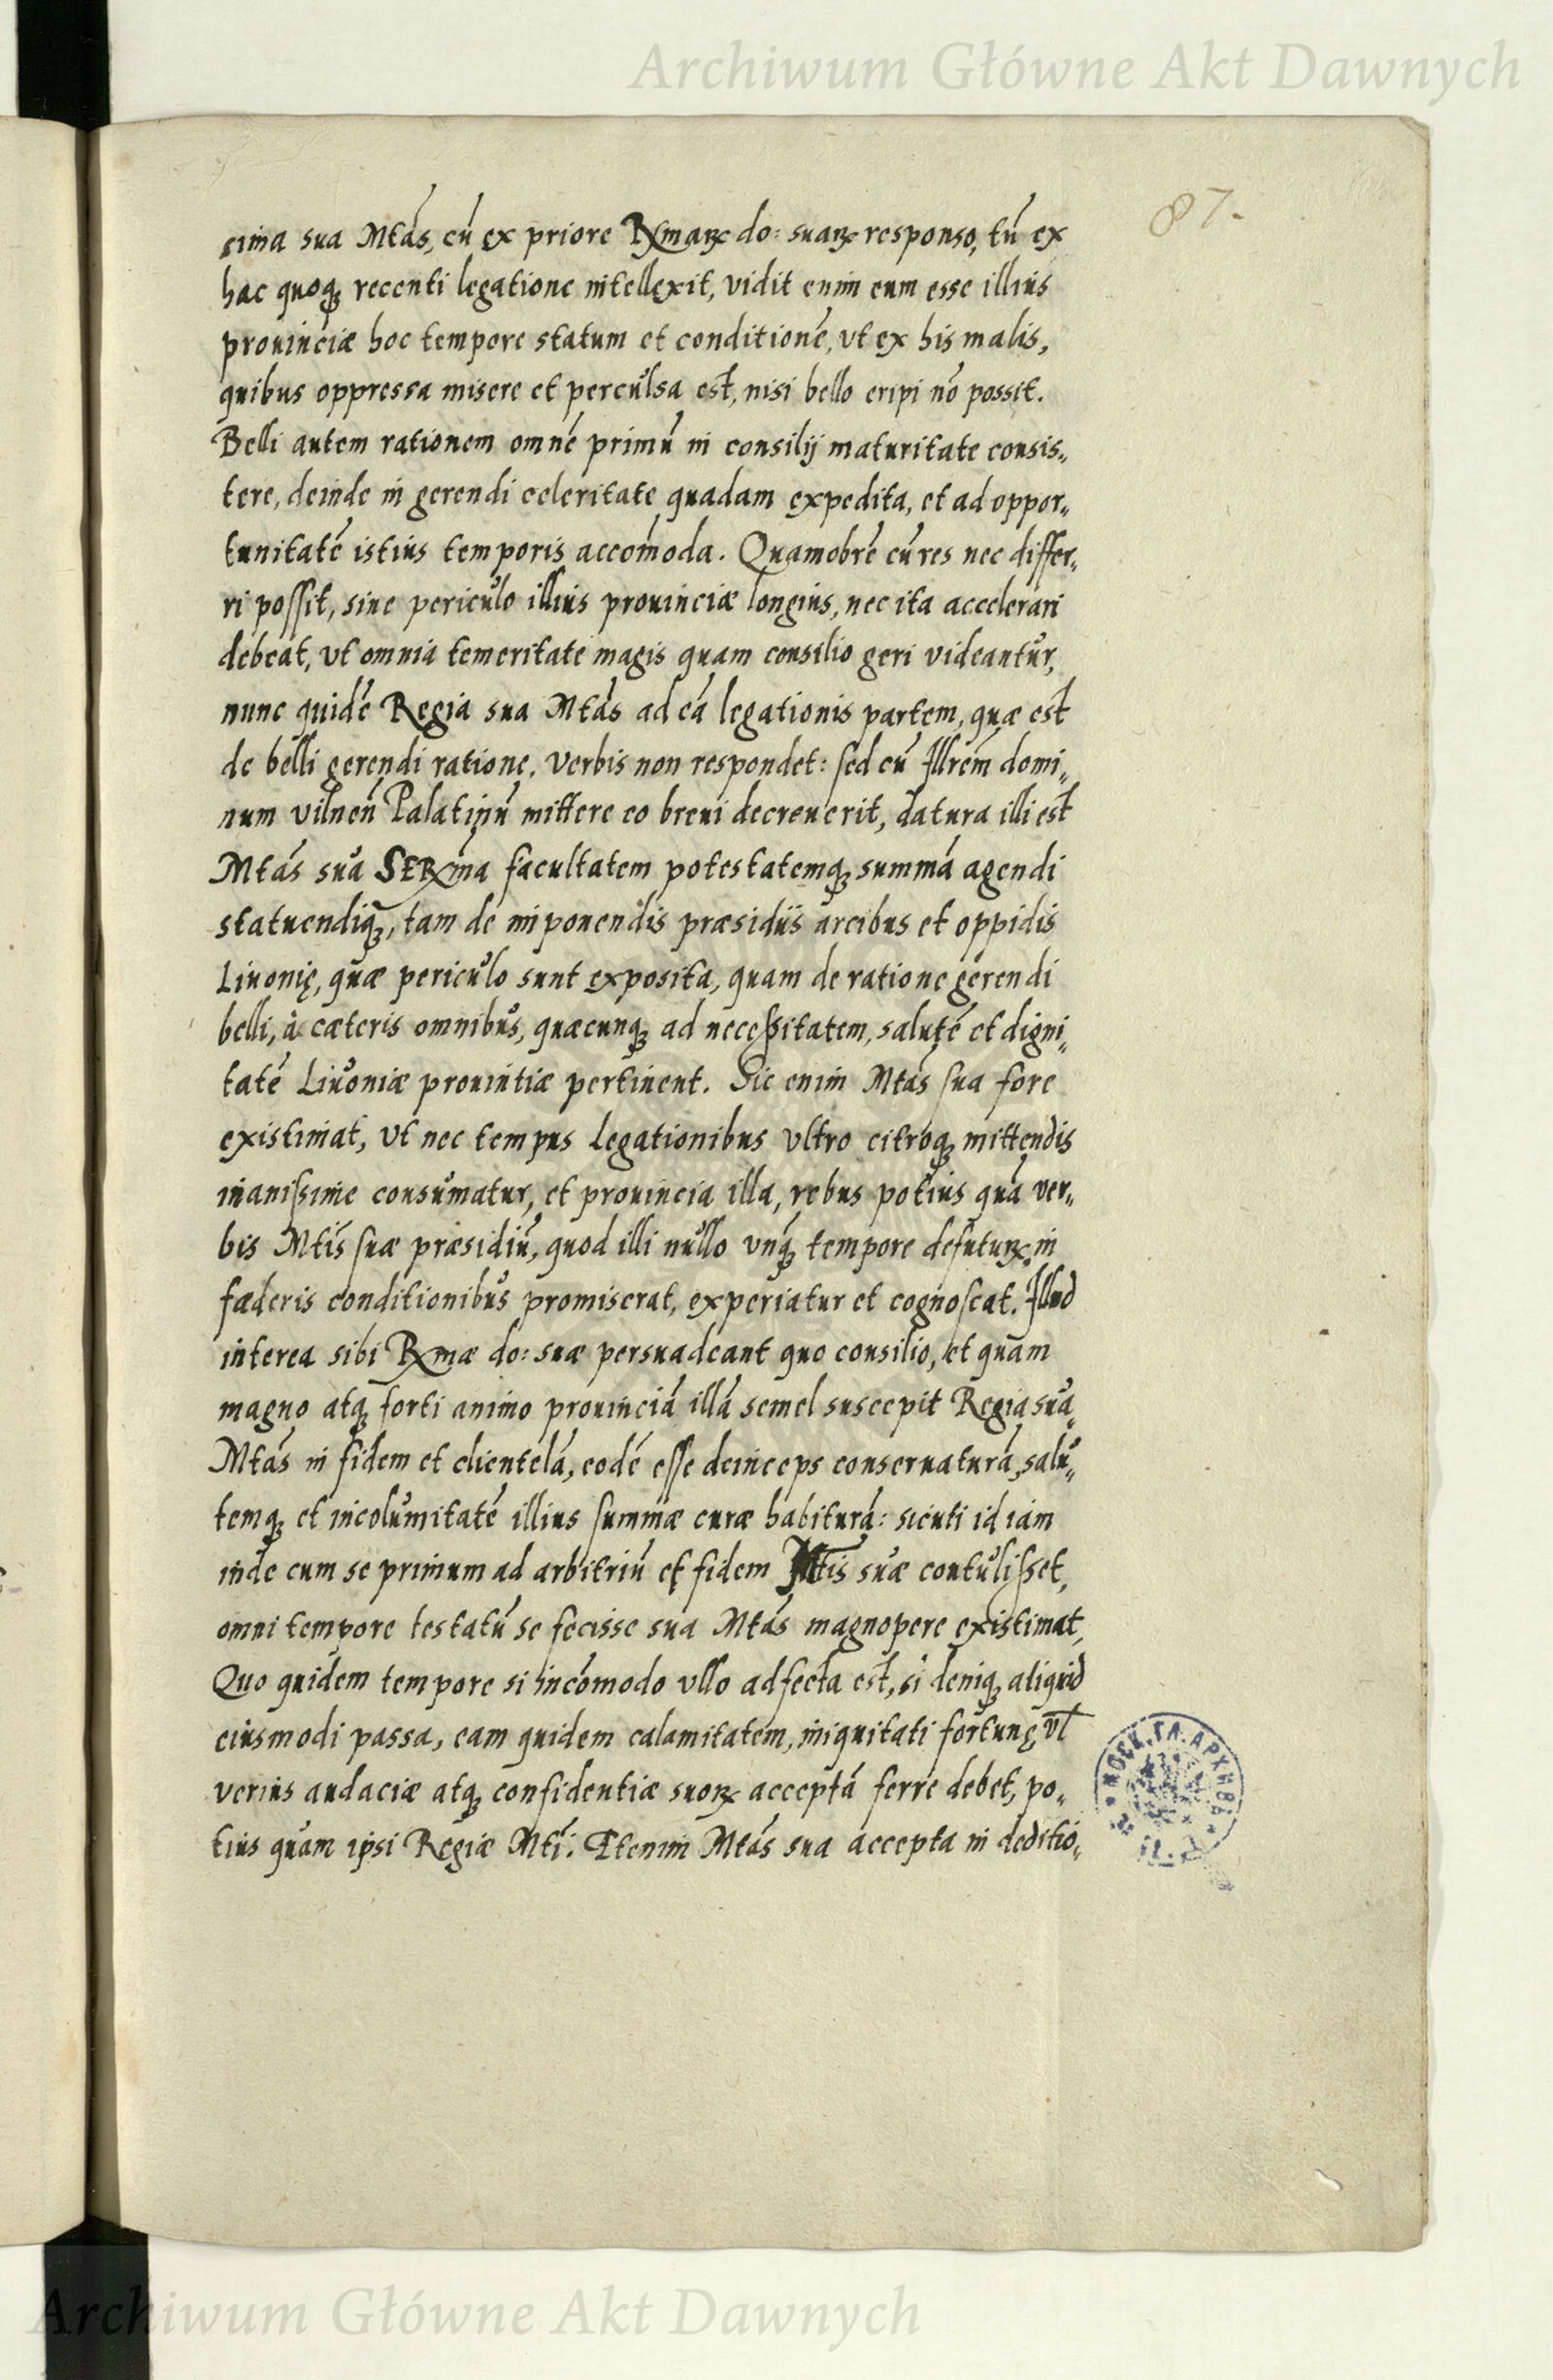 Archiwum Główne Akt Dawnych
87.
sima sua Mtás, cū ex priore Rxmaꝝ do: suaꝝ responso, tū ex
hac quoqꝫ recenti legatione intellexit, vidit enim eum esse illius
prouinciæ hoc tempore statum et conditionē, vt ex his malis,
quibus oppressa misere et perculsa est, nisi bello eripi nō possit.
Belli autem rationem omnē primū in consilij maturitate consis„
tere, deinde in gerendi celeritate quadam expedita, et ad oppor„
tunitatē istius temporis accōmoda. Quamobrē cū res nec differ„
ri possit, sine periculo illius prouinciæ longius, nec ita accelerari
debeat, vt omnia temeritate magis quam consilio geri videantur,
nunc quidē Regia sua Mtás ad eā legationis partem, quæ est
de belli gerendi ratione, verbis non respondet: sed cū Illrēm domi„
num vilneñ Palatinū mittere eo breui decreuerit, datura illi est
Mtás sua SERxma facultatem potestatemqꝫ summā agendi
statuendiqꝫ, tam de imponendis præsidiis arcibus et oppidis
Liuonię, quæ periculo sunt exposita, quam de ratione gerendi
belli, à cæteris omnibus, quæcunqꝫ ad necessitatem, salutē et digni„
tatē Liuoniæ prouintiæ pertinent. Sic enim Mtás sua fore
existimat, vt nec tempus legationibus vltro citroqꝫ mittendis
inanissime consumatur, et prouincia illa, rebus potius quā ver„
bis Mtis suæ præsidiū, quod illi nullo vnqꝫ tempore defuturꝝ in
fæderis conditionibus promiserat, experiatur et cognoscat. Illud
interea sibi Rxmæ do: suæ persuadeant quo consilio, et quam
magno atqꝫ forti animo prouinciā illā semel suscepit Regia sua
Mtás in fidem et clientelā, eodē esse deinceps conseruaturā, salu„
temqꝫ et incolumitatē illius summæ curæ habiturā: sicuti id iam
inde cum se primum ad arbitriū et fidem Mtis suæ contulisset,
omni tempore testatū se fecisse sua Mtás magnopere existimat,
Quo quidem tempore si incōmodo vllo adfecta est, si deniqꝫ aliquid
eiusmodi passa, eam quidem calamitatem, iniquitati fortunę, vl
verius audaciæ atqꝫ confidentiæ suoꝝ acceptā ferre debet, po„
tius quam ipsi Regiæ Mti: Etenim Mtás sua accepta in deditio„
МОСК. ГЛ. АРХИВЪ
Archiwum Główne Akt Dawnych